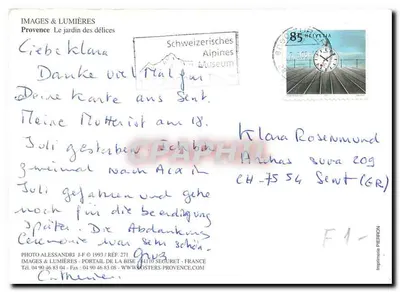 IMAGES & LUMIÈRES
Provence Le jardin des délices
Schweizerisches
Alpines
Museum
85 HELVETIA
Liebe Klara
Danke viel Mal für
Deine Karte aus Sent.
Meine Mutter ist am 18.
Juli gestorben ich bin
zweimal nach Aix in
Juli gefahren und gehe
noch für die beerdigung
später. Die Abdankungs
Ceremonie war sehr schön.
Gruss
Catherine
Klara Rosenmund
sura 209
CH-7554 Sent (GR)
F 1-
PHOTO ALESSANDRI J-F © 1993 / REF. 271
IMAGES & LUMIÈRES - PORTAIL DE LA BISE 84110 SEGURET - FRANCE
Tél. 04 90 46 83 04 - Fax 04 90 46 83 00 - WWW.POSTERS-PROVENCE.COM